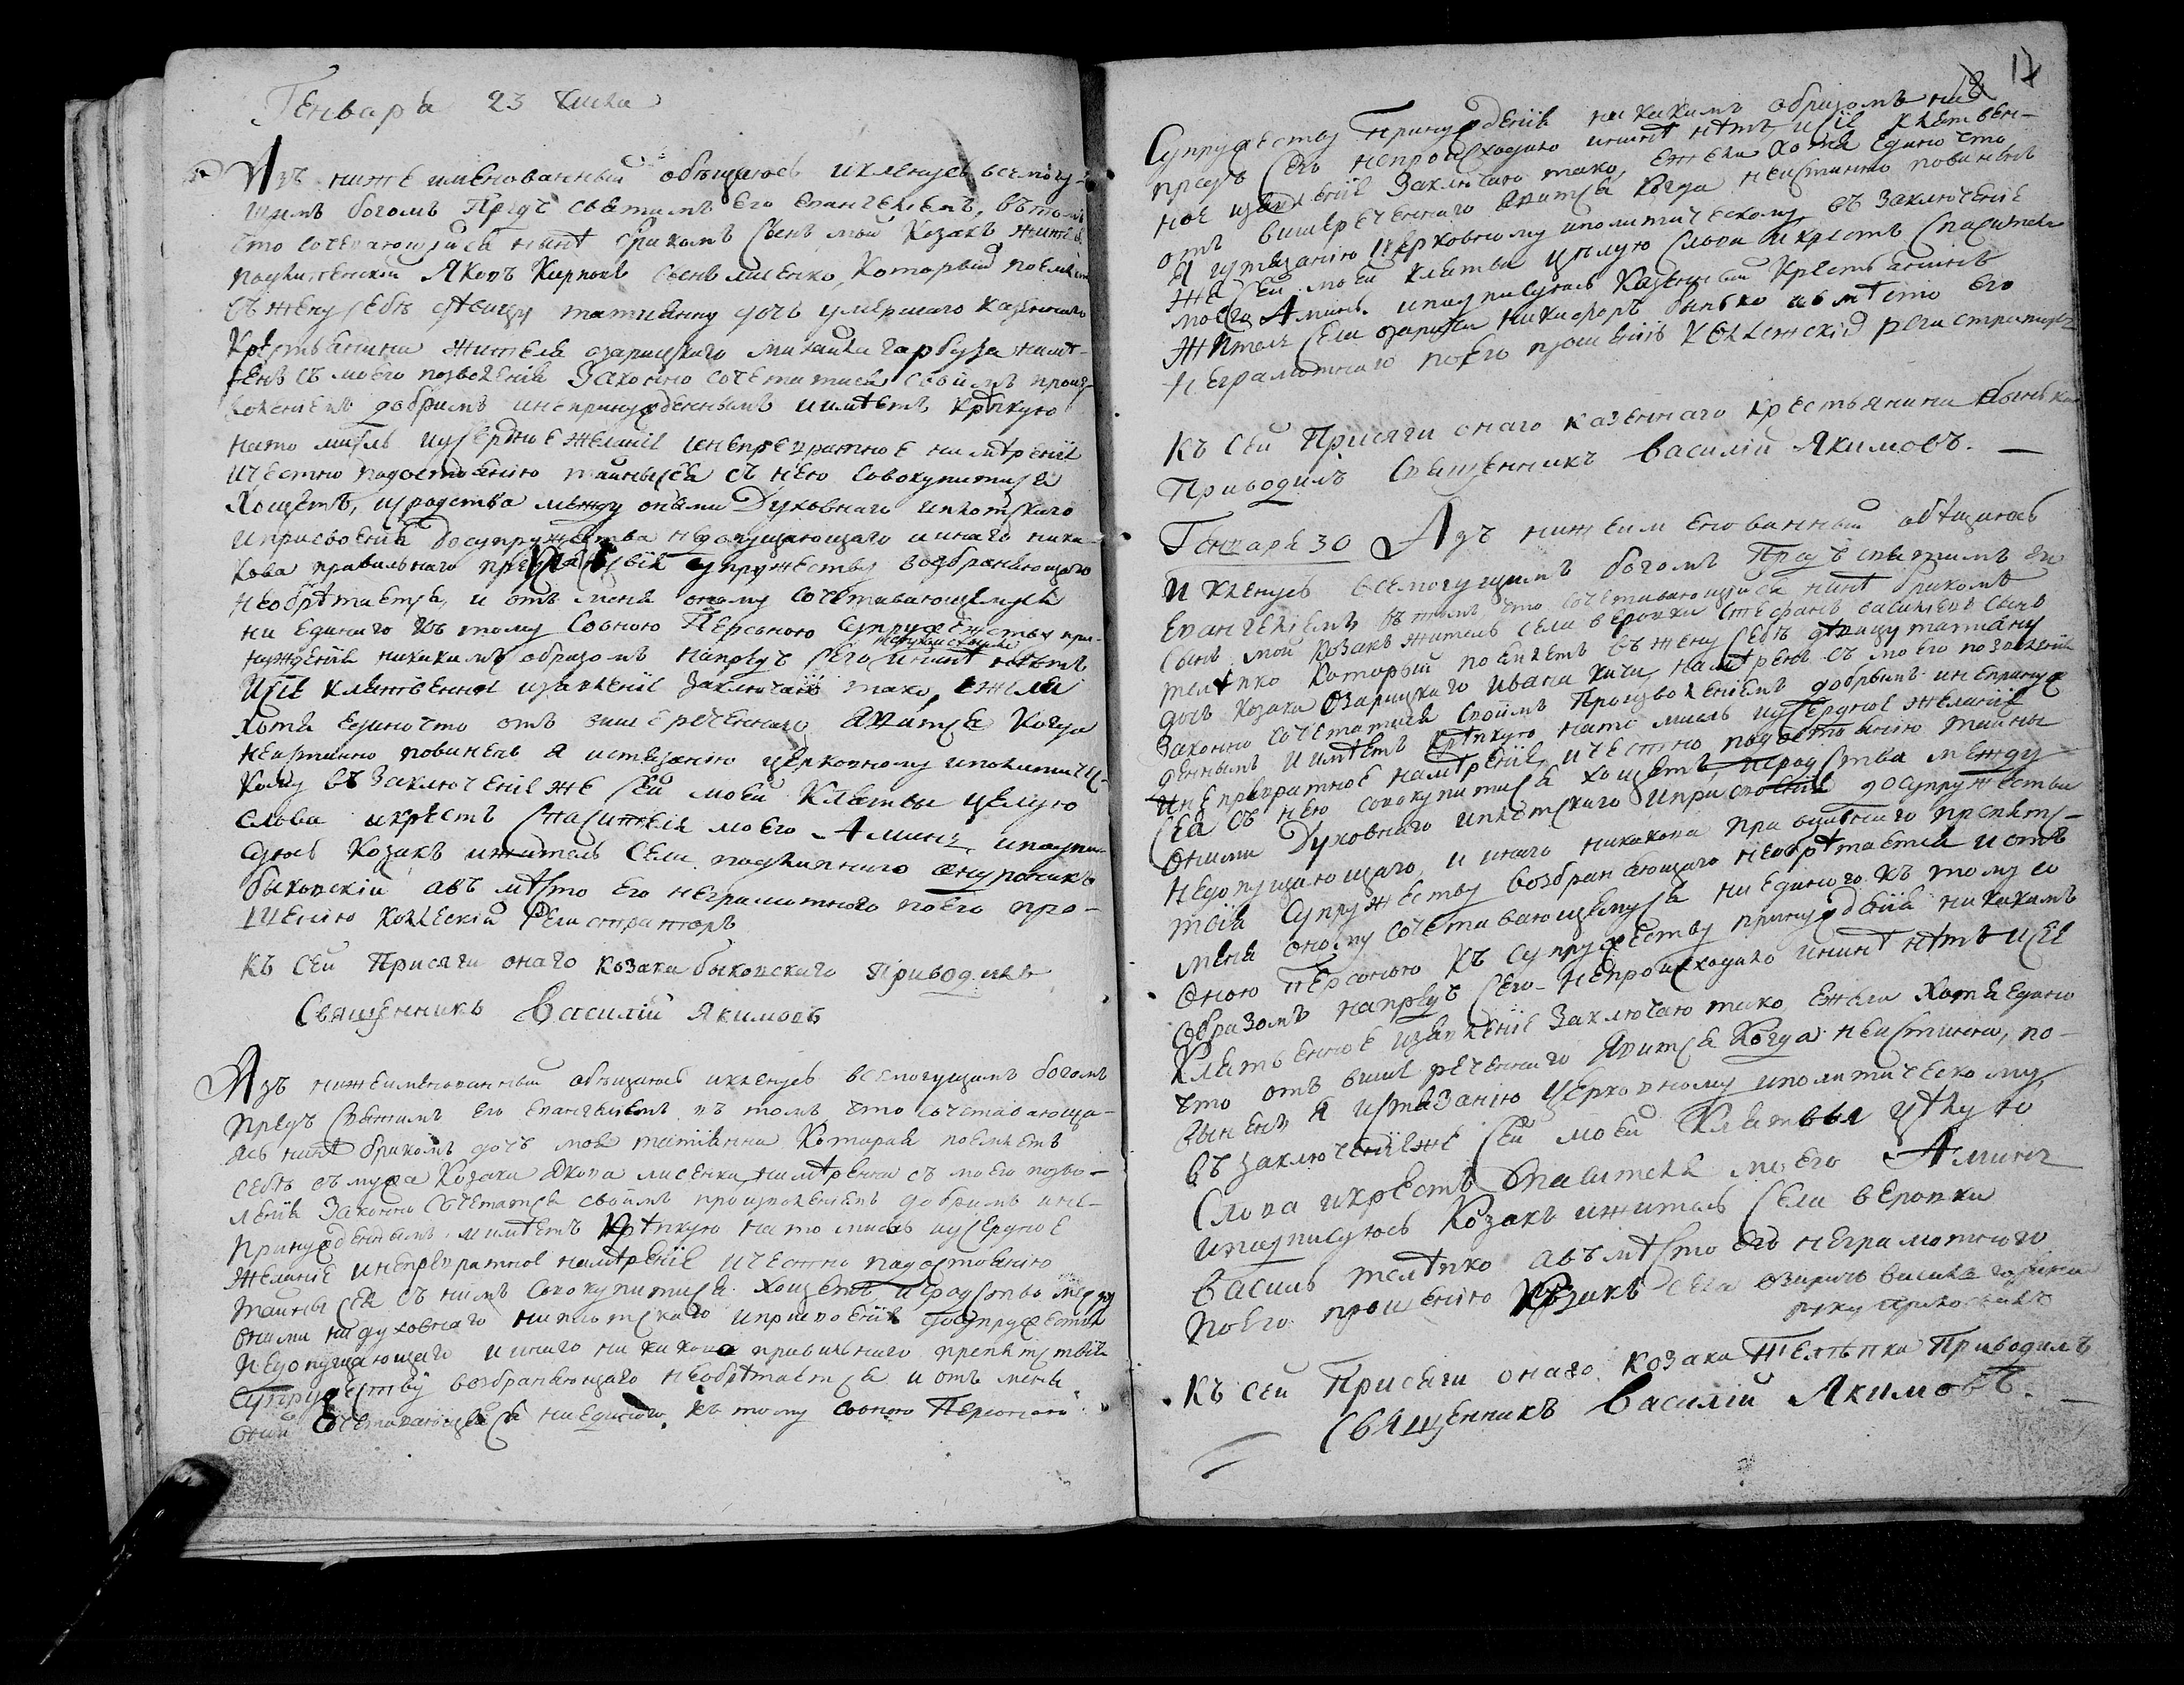 Генваря 23 числа
Азъ нижеименованный обѣщаюсь и кленусь всемогу-
щимъ богомъ Предъ святимъ его евангелиемъ, вътомъ
что сочетающийся нинѣ бракомъ Сынъ мой Козакъ жите
Яковъ Карповъ сынъ лисенко, Который поемлетъ
въ жену себѣ дѣвицу татиянну дочь умершаго казенного
Крестьянина жителя озарицкого михайла гарбуза намѣ-
ренъ съ моего позволения Законно сочетатися своимъ произ-
волениемъ добримъ инепринужденнымъ иимѣетъ крѣпкую
нато мисль иусердное желаніе инепревратное намѣреніе
ичестно подостоянію тайны сея съ нею совокупитися
хощетъ, иродства между оными Духовнаго иплотскаго
иприсвоения досупружества недопущающаго иинаго ника-
кова правильнаго препятствия супружеству возбраняющаго
необрѣтается, и отъ меня оному сочетавающемуся
ни единаго къ тому Соеною Персоною Супружеству при-
нужденія никакимъ образомъ напредъ сего инынѣ нѣтъ
Исіе клятвенное изявленіе заключаю тако, ежели
хотя едино что отъ вишереченнаго явится когда
неистинно повиненъ я истязанію церковному иполитиче-
кому въ заключеніе же сей моей Клятвы целую
слова икрестъ спасителя моего Аминь, иподпи-
суюсь Козакъ ижитель Села андроникъ
быковский авъ мѣсто его неграмотного поего про-
щенію колежскій Регистраторъ
Къ сей Присяги онаго козака быковскаго Приводилъ
Священникъ Василий Якимовъ
Азъ нижеименованный обещаюсь икленусь всемогущимъ богомъ
предъ святимъ его евангелиемъ въ томъ что сочетавающа-
ясь нинѣ бракомъ дочь моя татиянна Которая поемлетъ
себѣ въ мужа Козака Якова лисенка намѣренна съ моего позво-
ления Законно сочетатся своимъ произволениемъ добримъ ине-
принужденнымъ иимѣетъ крѣпкую нато мисль иусердное
желаніе инепревратное намѣреніе ичестно подостоянію
тайны сея съ нимъ совокупитися хощетъ, иродства между
оними ни духовнаго ни плотскаго иприсвоения досупружества
недопущающаго иинаго ни какова правильнаго препятствия
супружеству возбраняющаго необрѣтается и отъ меня
оной сочетавающейся ниединого къ тому соеною Персоною
17
Супружеству Принужденія никакимъ образомъ на
предъ сего непроисходило инынѣ нѣтъ, исіе клятвен-
ное изявленіе Заключаю тако, ежели хотя едино что
отъ вишереченнаго явится когда неистинно повиненъ
я истязанію церковному иполитическому, въ заключеніе
же сей моей клятвы целую слова икрестъ Спасителя
моего Аминь. иподписуюсь Казенный Крестьянинъ
Житель Села озаричъ никифоръ бынько авмѣсто его
неграмотнаго поего прошенію Колежский регистраторъ
Къ сей Присяги онаго казеннаго крестьянина бынька
Приводилъ Священникъ Василій Якимовъ.
Генваря 30 Азъ нижеименованный обѣщаюсь
и кленусь всемогущимъ богомъ Предъ святимъ его
Евангелиемъ въ томъ что сочетавающийся нинѣ бракомъ
Сынъ мой Козакъ житель села веровки Стефанъ василіевъ сынъ
который поемлетъ въ жену себѣ дѣвицу татияну
дочь козака Озарицкаго Ивана намѣренъ съ моего позволения
законно сочетатися своимъ Произволениемъ добрымъ инепринуж
деннымъ иимѣетъ крѣпкую нато мисль иусердное желаніе
инепревратное намѣреніе, ичестно подостоянію тайны
Сея съ нею совокупитися хощетъ, иродства между
оними Духовнаго иплотскаго иприсвоения досупружества
недопущающаго, и инаго никакова правилнаго препятс-
твія Супружеству возбраняющаго необрѣтается иотъ
меня оному сочетавающемуся ниединого къ тому со
оною Персоною къ супружеству принужденія никакимъ
Образомъ напредъ сего непроисходило инынѣ нѣтъ исіе
Клятвенное изявленіе Заключаю тако, ежели хотя едино
что отъ више реченнаго явится когда неистинна, по-
виненъ я истязанію церковному иполитическому,
въ заключеніеже Сей моей Клятвы цѣлую
Слова икрестъ Спасителя моего Аминь
иподписуюсь Козакъ ижитель Села веровки
Василь авъмѣсто его неграмотного
поего прошенію Козакъ Села озаричъ василь
руку приложилъ
Къ сей Присяги онаго козака Приводилъ
Священникъ Василій Якимовъ.